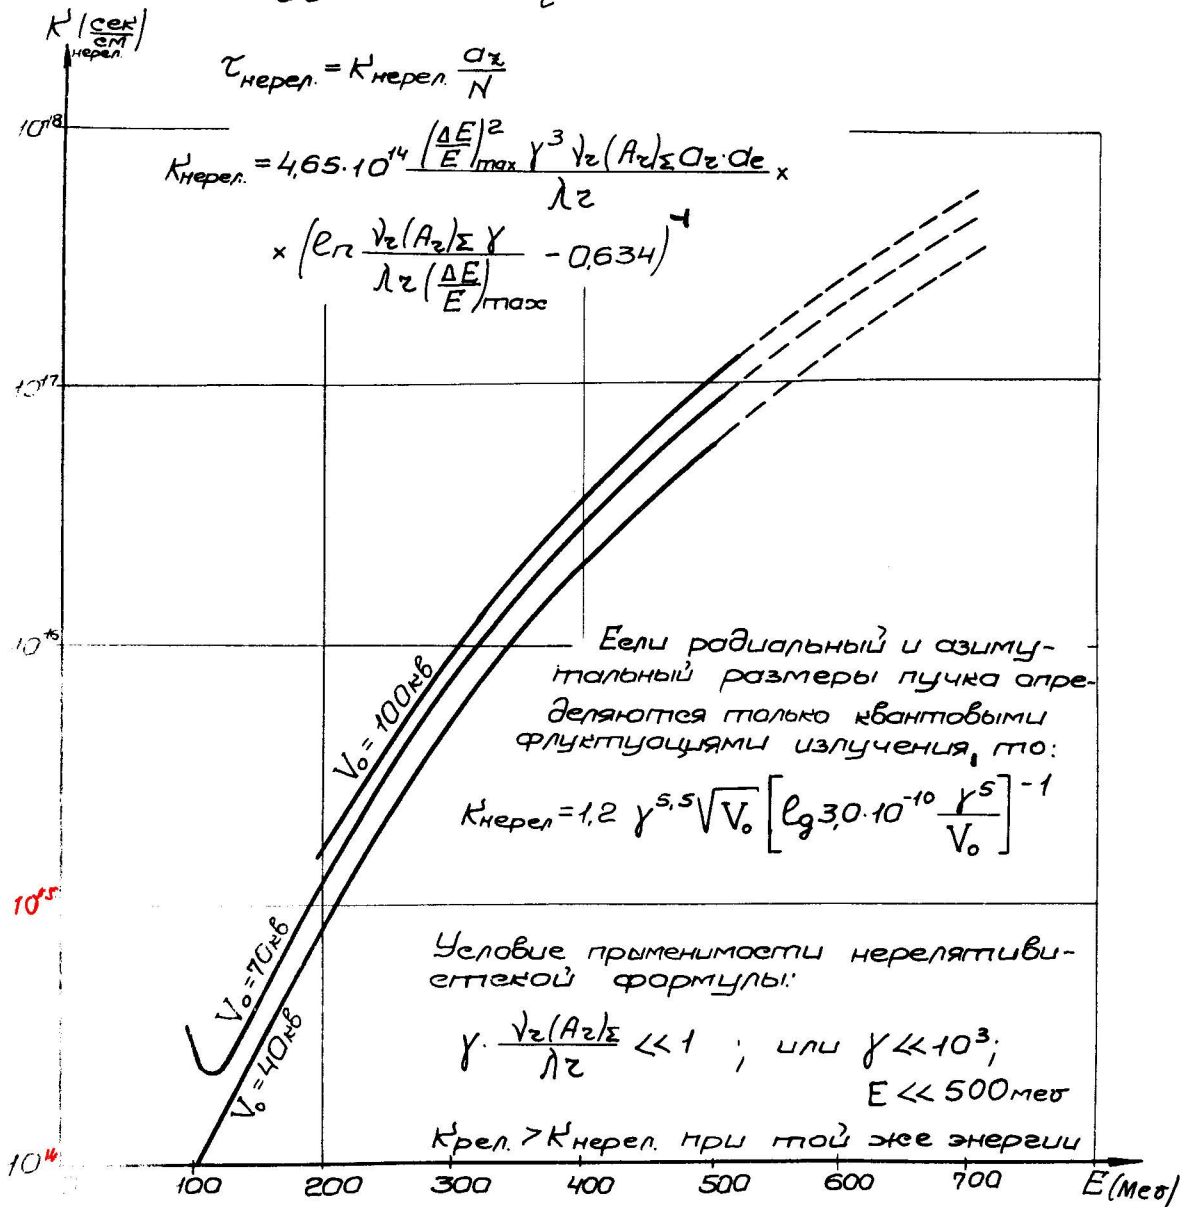 K (сек/см) нерел.
τнерел. = Kнерел. a_z/N
10^18
Kнерел. = 4,65·10^14 (ΔE/E)²max γ³ ν_z(A_z)_Σ a_z·a_e / λ_z ×
× (ln ν_z(A_z)_Σ γ / λ_z(ΔE/E)max − 0,634)^-1
10^17
10^16
Если радиальный и азиму-
тальный размеры пучка опре-
деляются только квантовыми
флуктуациями излучения, то:
Kнерел = 1,2 γ^5,5 √V₀ [lg 3,0·10^-10 γ^5/V₀]^-1
V₀ = 100кв
V₀ = 70кв
V₀ = 40кв
10^15
Условие применимости нереляти­ви-
стской формулы:
γ · ν_z(A_z)_Σ / λ_z << 1 ; или γ << 10³;
E << 500мев
Kрел. > Kнерел. при той же энергии
10^14
100 200 300 400 500 600 700 E (Мев)